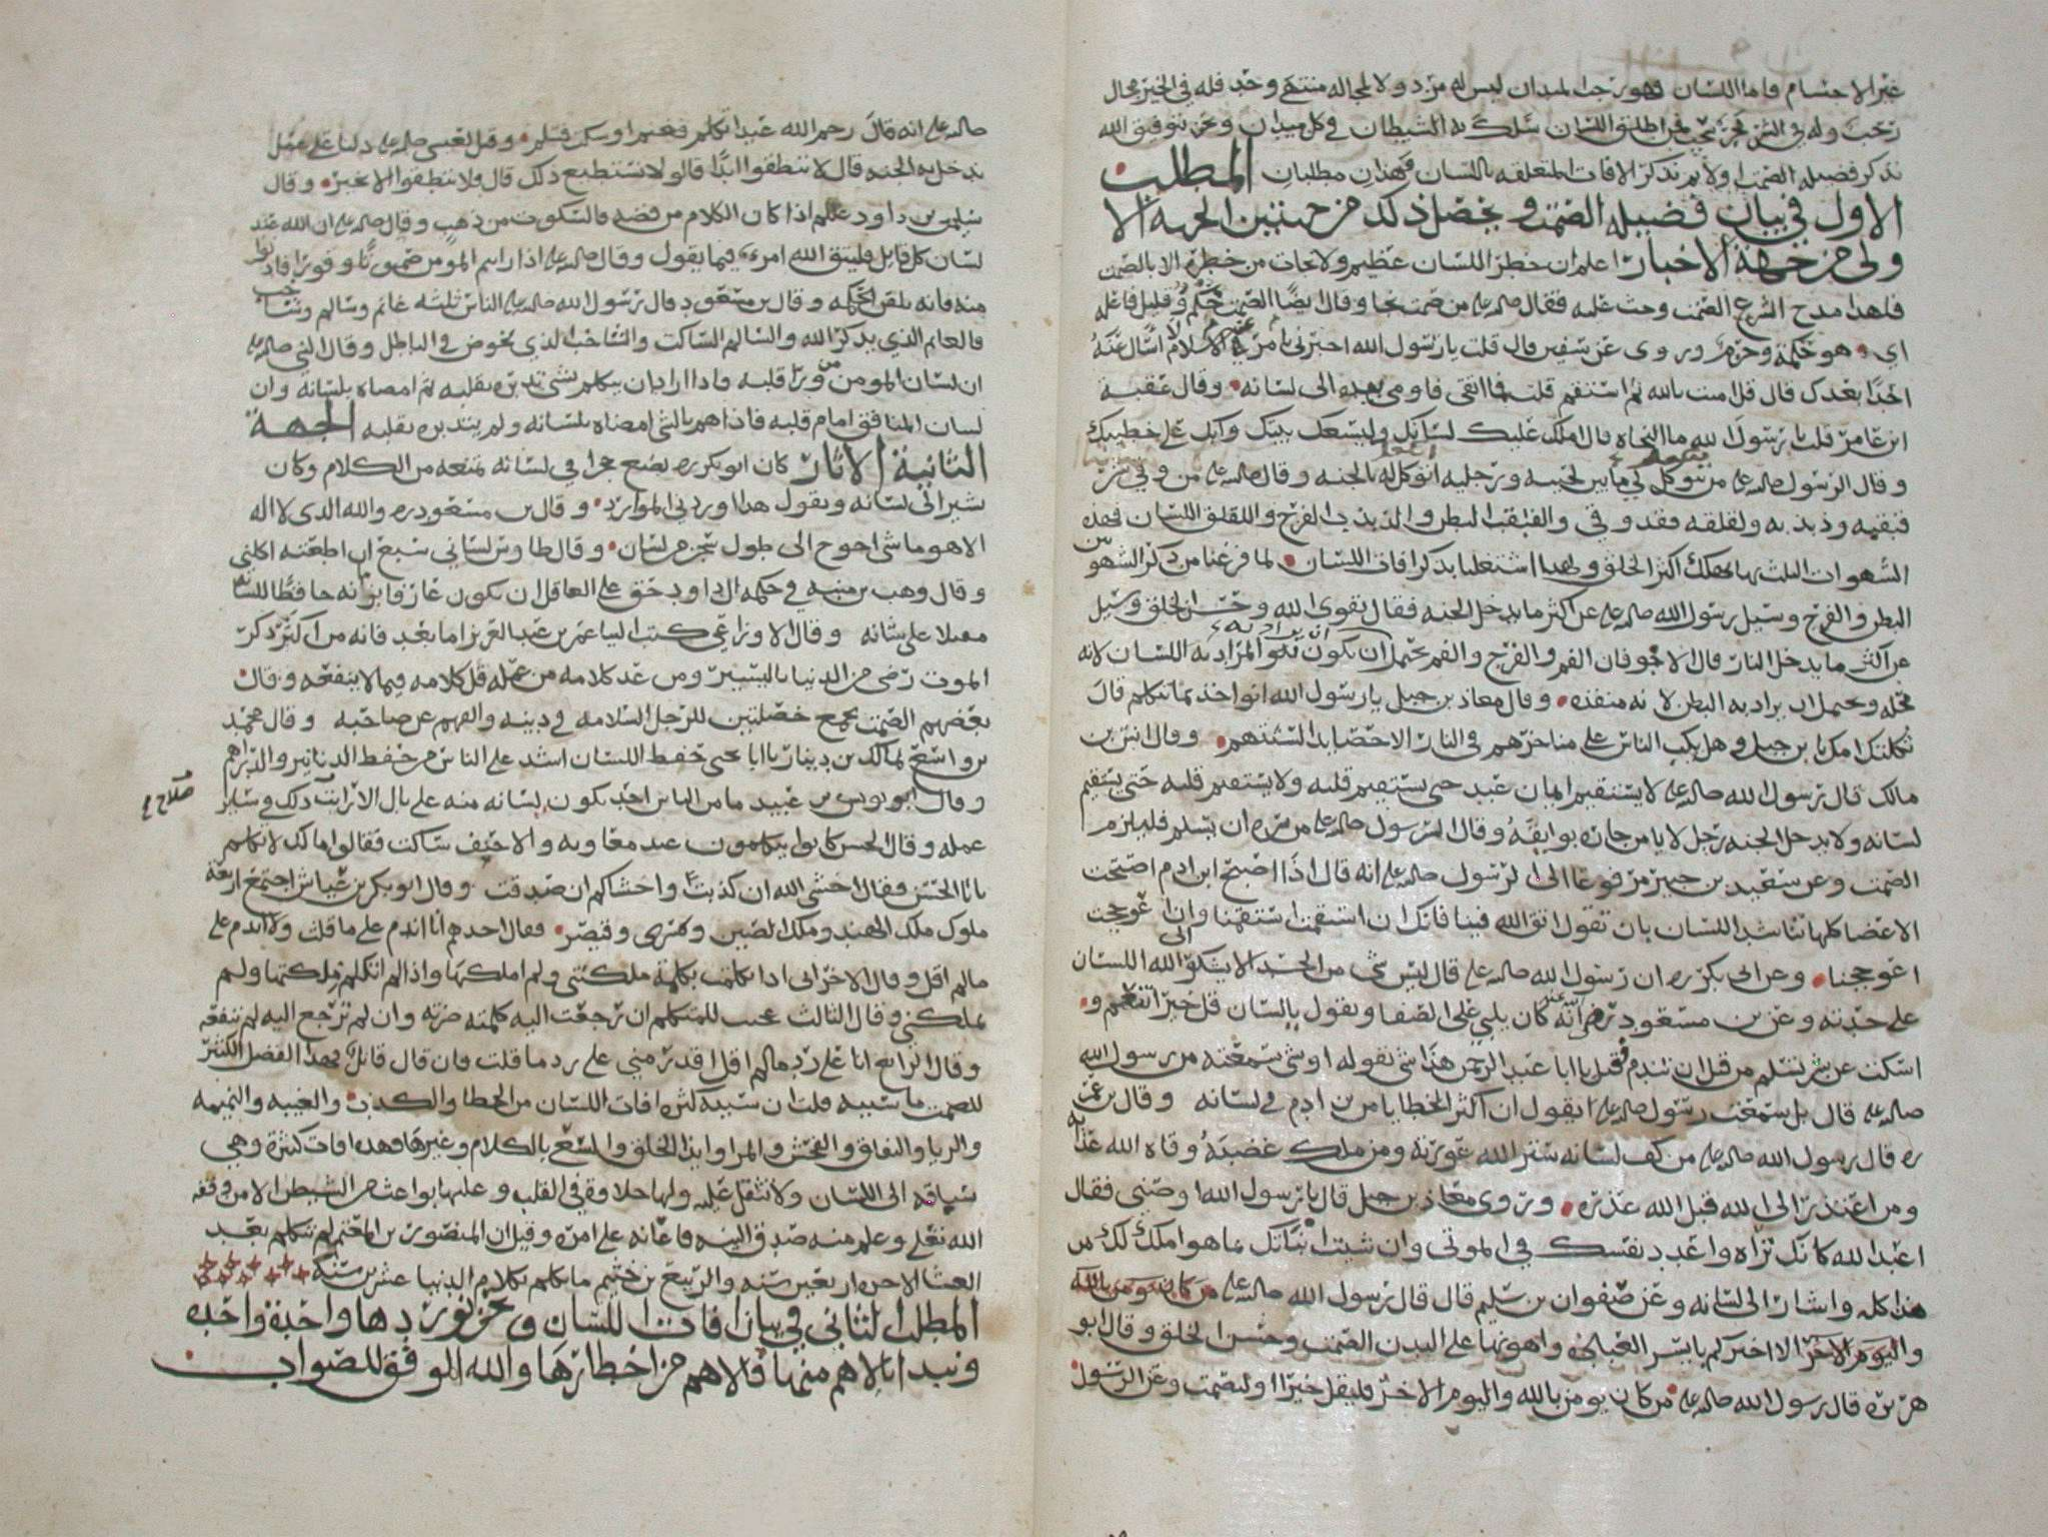 غير الاجسام فاما اللسان فهو رحب الميدان ليس له مرد ولا لمجاله منتهى وحد فله في الخير مجال
رحب وله في الشر بحر سحب فمن اطلق اللسان سلك به الشيطان في كل ميدان ونحن بتوفيق الله
نذكر فضيلة الصمت اولا ثم نذكر الافات المتعلقه باللسان فهذان مطلبان المطلب
الاول في بيان فضيله الصمت ويحصل ذلك من جهتين الجهه الا
ولى من جهة الاخبار اعلم ان خطر اللسان عظيم ولا نجات من خطره الا بالصمت
فلهذا مدح الشرع الصمت وحث عليه فقال صلى الله عليه من صمت نجا وقال ايضا الصمت حكم وقليل فاعله
اي هو حكمة وحزم وروى عن سفين قال قلت يا رسول الله اخبرني بامر في الاسلام لا اسال عنه
احدا بعدك قال قل امنت بالله ثم استقم قلت فما اتقى فاومى بيده الى لسانه وقال عقبة
ابن عامر قلت يا رسول الله ما النجاه قال املك عليك لسانك وليسعك بيتك وابك على خطيتك
وقال الرسول صلى الله عليه من يتوكل لي ما بين لحييه ورجليه اتوكل له بالجنه وقال صلى الله عليه من وقي شر
قبقبه وذبذبه ولقلقه فقد وقي والقبقب البطن والذبذب الفرج واللقلق اللسان فهذه
الشهوات الثلث بها يهلك اكثر الخلق ولهذا اشتغلنا بذكر افات اللسان لما فرغنا من ذكر الشهوتين
البطن والفرج وسيل رسول الله صلى الله عليه عن اكثر ما يدخل الجنه فقال تقوى الله وحسن الخلق وسيل
عن اكثر ما يدخل النار قال الاجوفان الفم والفرج والفم يحتمل ان يكون المراد به اللسان لانه
محله ويحتمل ان يراد به البطن لانه منفذه وقال معاذ بن جبل يا رسول الله انواخذ بما نتكلم قال
ثكلتك امك يا بن جبل وهل يكب الناس على مناخرهم في النار الا حصايد السنتهم وقال انس بن
مالك قال رسول الله صلى الله عليه لا يستقيم ايمان عبد حتى يستقيم قلبه ولا يستقيم قلبه حتى يستقيم
لسانه ولا يدخل الجنه رجل لا يامن جاره بوايقه وقال الرسول صلى الله عليه من سره ان يسلم فليلزم
الصمت وعن سعيد بن جبير مرفوعا الى الرسول صلى الله عليه انه قال اذا اصبح ابن ادم اصبحت
الاعضا كلها تناشد اللسان بان تقول اتق الله فينا فانك ان استقمت استقمنا وان اعوججت
اعوججنا وعن ابي بكر ره ان رسول الله صلى الله عليه قال ليس شي من الجسد الا يشكو الى الله اللسان
على حدته وعن بن مسعود رضي الله عنه انه كان يلبي على الصفا ويقول يا لسان قل خيرا تغنم و
اسكت عن شر تسلم من قبل ان تندم فقيل يا ابا عبد الرحمن هذا شي تقوله او شي سمعته من رسول الله
صلى الله عليه قال بل سمعت رسول الله صلى الله عليه يقول ان اكثر الخطايا من بن ادم في لسانه وقال بن عمر
ره قال رسول الله صلى الله عليه من كف لسانه ستر الله عورته ومن ملك غضبه وقاه الله عذابه
ومن اعتذر الى الله قبل الله عذره وروى معاذ بن جبل قال يا رسول الله اوصني فقال
اعبد الله كانك تراه واعدد نفسك في الموتى وان شيت انباتك بما هو املك لك من
هذا كله واشار الى لسانه وعن صفوان بن سليم قال قال رسول الله صلى الله عليه
واليوم الاخر الا اخبركم بايسر العباده واهونها على البدن الصمت وحسن الخلق وقال ابو
هريره قال رسول الله صلى الله عليه من كان يومن بالله واليوم الاخر فليقل خيرا او ليصمت وعن الرسول
صلى الله عليه انه قال رحم الله عبدا تكلم فغنم او سكت فسلم وقيل لعيسى صلى الله عليه دلنا على عمل
ندخل به الجنه قال لا تنطقوا ابدا قالو لا نستطيع ذلك قال فلا تنطقوا الا بخير وقال
سليمن بن داود علم اذا كان الكلام من فضه فالسكوت من ذهب وقال صلى الله عليه ان الله عند
لسان كل قايل فليتق الله امرء فيما يقول وقال صلى الله عليه اذا رايتم المومن صموتا وقورا فادنوا
منه فانه يلقن الحكمه وقال بن مسعود قال رسول الله صلى الله عليه الناس ثلثه غانم وسالم وشاحب
فالغانم الذي يذكر الله والسالم الساكت والشاحب الذي يخوض في الباطل وقال النبي صلى الله عليه
ان لسان المومن من ورا قلبه فاذا اراد ان يتكلم بشي تدبره بقلبه ثم امضاه بلسانه وان
لسان المنافق امام قلبه فاذا هم بالشي امضاه بلسانه ولم يتدبره بقلبه الجهة
الثانية الاثار كان ابو بكر ره يضع حجرا في لسانه تمنعه من الكلام وكان
يشير الى لسانه ويقول هذا اوردني الموارد وقال بن مسعود ره والله الذي لا اله
الا هو ما شي احوج الى طول سجن من لسان وقال طاوس لساني سبع ان اطعته اكلني
وقال وهب بن منبه في حكمه ال داود حق على العاقل ان يكون عارفا بزمانه حافظا للسانه
مقبلا على شانه وقال الاوزاعي كتب الينا عمر بن عبد العزيز اما بعد فانه من اكثر ذكر
الموت رضي من الدنيا باليسير ومن عد كلامه من عمله قل كلامه فيما لا ينفعه وقال
بعضهم الصمت يجمع خصلتين للرجل السلامه في دينه والفهم عن صاحبه وقال محمد
بن واسع لمالك بن دينار يا ابا يحيى حفظ اللسان اشد على الناس من حفظ الدنانير والدراهم
وقال ابو يونس بن عبيد ما من الناس احد يكون لسانه منه على بال الا رايت ذلك في ساير
صلاح
عمله وقال الحسن كانوا يتكلمون عند معاويه والاحنف ساكت فقالوا مالك لا تكلم
يا ابا الحسن فقال اخشى الله ان كذبت واخشاكم ان صدقت وقال ابو بكر بن عياش اجتمع اربعة
ملوك ملك الهند وملك الصين وكسرى وقيصر فقال احدهم انا اندم على ما قلت ولا اندم على
مالم اقل وقال الاخر اني اذا تكلمت بكلمة ملكتني ولم املكها واذا لم اتكلم ملكتها ولم
تملكني وقال الثالث عجبت للمتكلم ان رجعت اليه كلمته ضرته وان لم ترجع اليه لم تنفعه
وقال الرابع انا على رد مالم اقل اقدر مني على رد ما قلت فان قال قائل فهذا الفضل الكثير
للصمت ما سببه قلت ان سببه كثره افات اللسان من الخطا والكذب والغيبه والنميمه
والريا والنفاق والفحش والمرا وايذا الخلق والسمع بالكلام وغيرها فهذه افات كثيرة وهي
سباقه الى اللسان ولا تثقل عليه ولها حلاوة في القلب وعليها بواعث من الشيطن الا من وفقه
الله تعلى وعلم منه صدق النيه فاعانه على امره وقيل ان المنصور بن المعتمر لم يتكلم بعد
العشا الاخره اربعين سنه والربيع بن خثيم ما تكلم بكلام الدنيا عشرين سنه
المطلب الثاني في بيان افات اللسان ونحن نوردها واحدة واحده
ونبدا بالاهم منها فالاهم من اخطارها والله الموفق للصواب